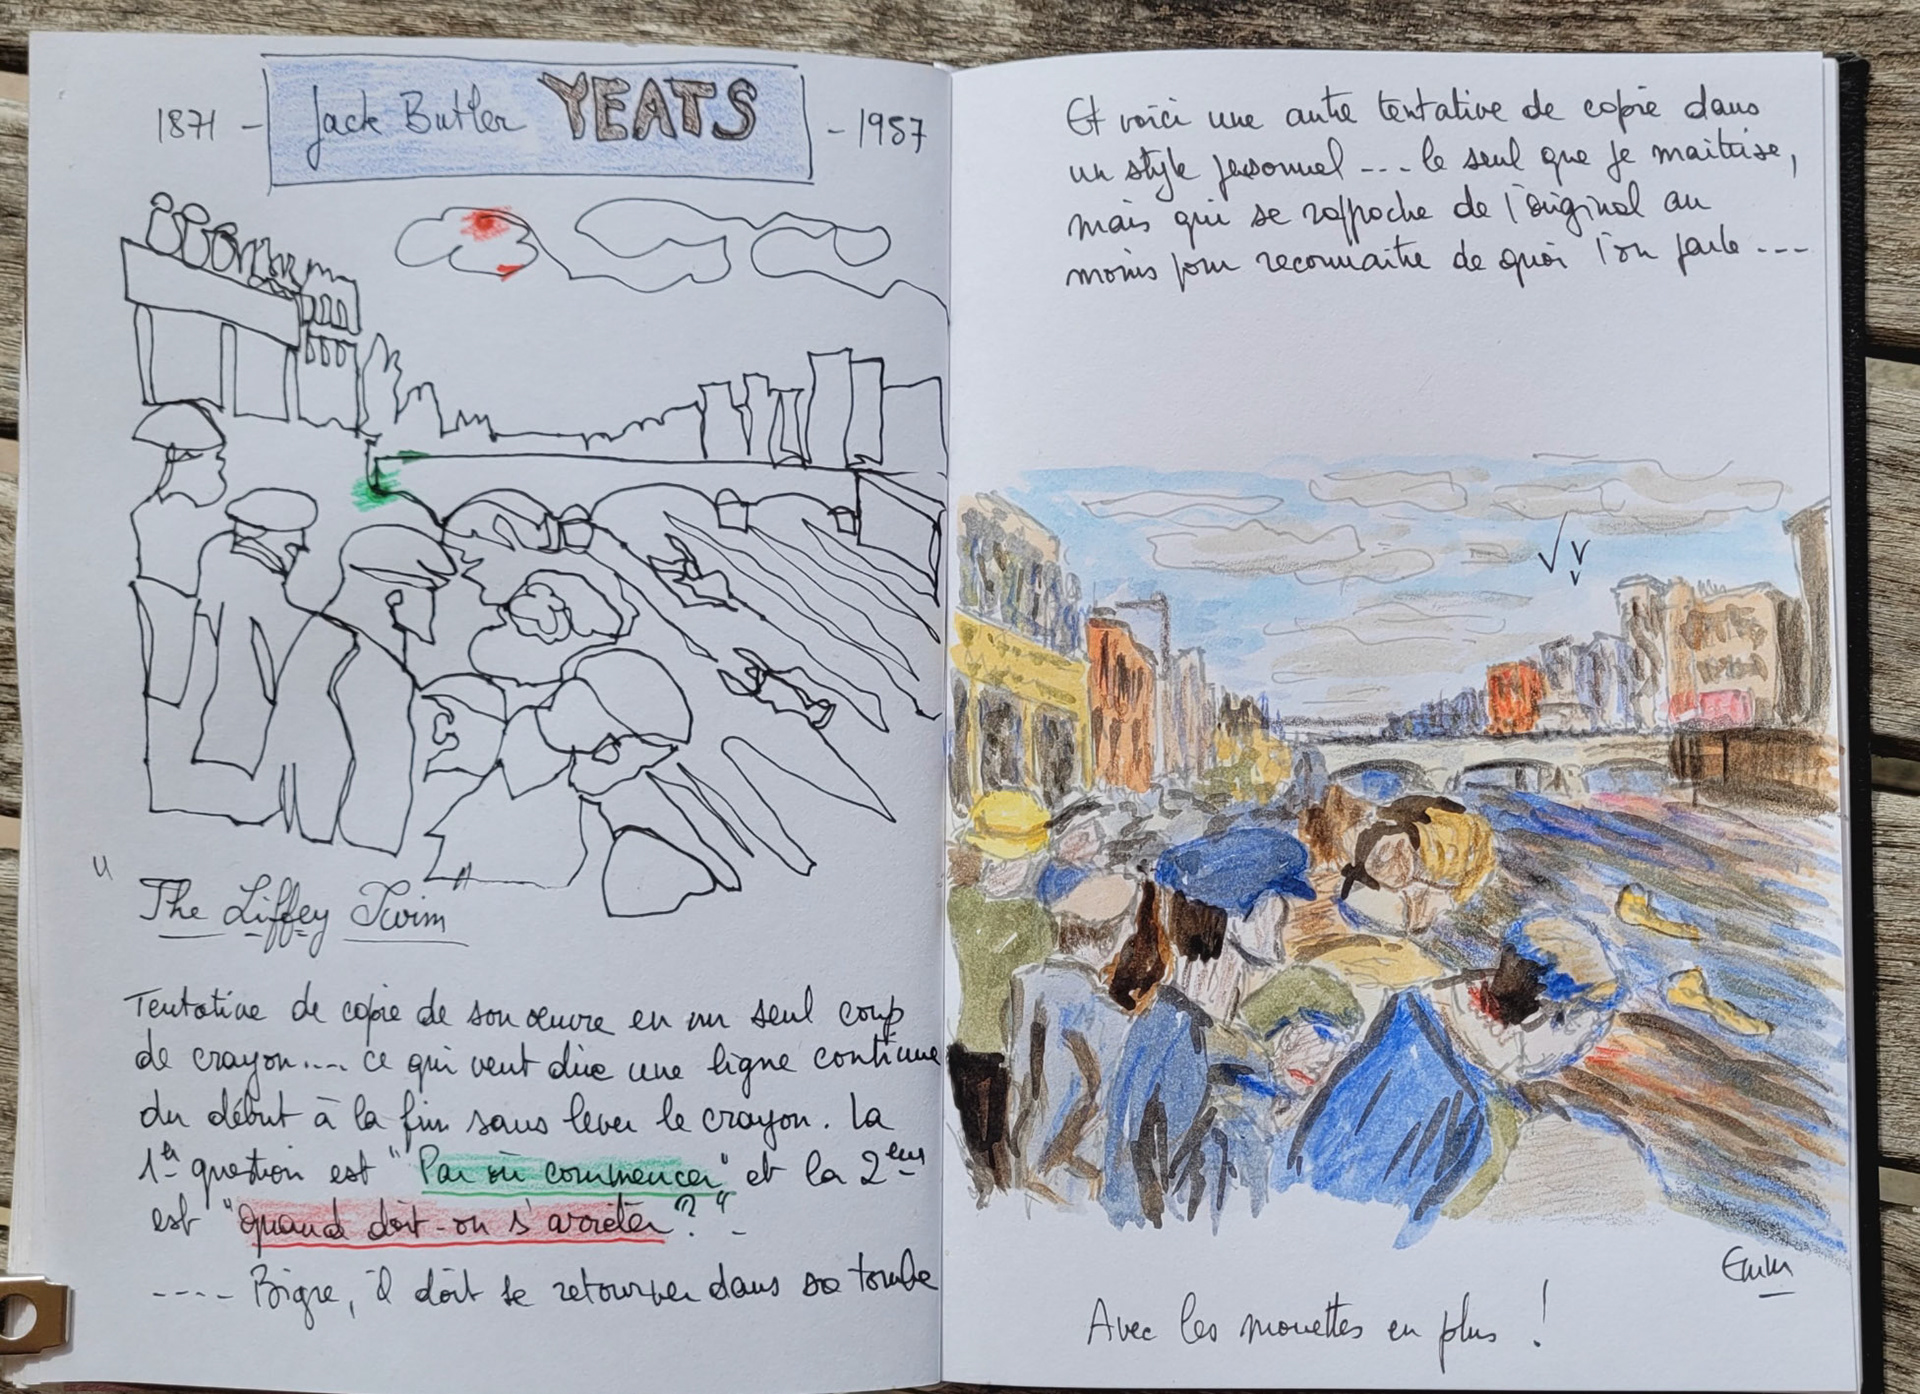 1871 - Jack Butler YEATS - 1957
"The Liffey Swim"
Tentative de copie de son œuvre en un seul coup
de crayon.... ce qui veut dire une ligne continue
du début à la fin sans lever le crayon. La
1ère question est "Par où commencer" et la 2ème
est "quand doit-on s'arrêter?" -
---- Bigre, il doit se retourner dans sa tombe
Et voici une autre tentative de copie dans
un style personnel --- le seul que je maitrise,
mais qui se rapproche de l'original au
moins pour reconnaitre de quoi l'on parle ---
Avec les mouettes en plus !